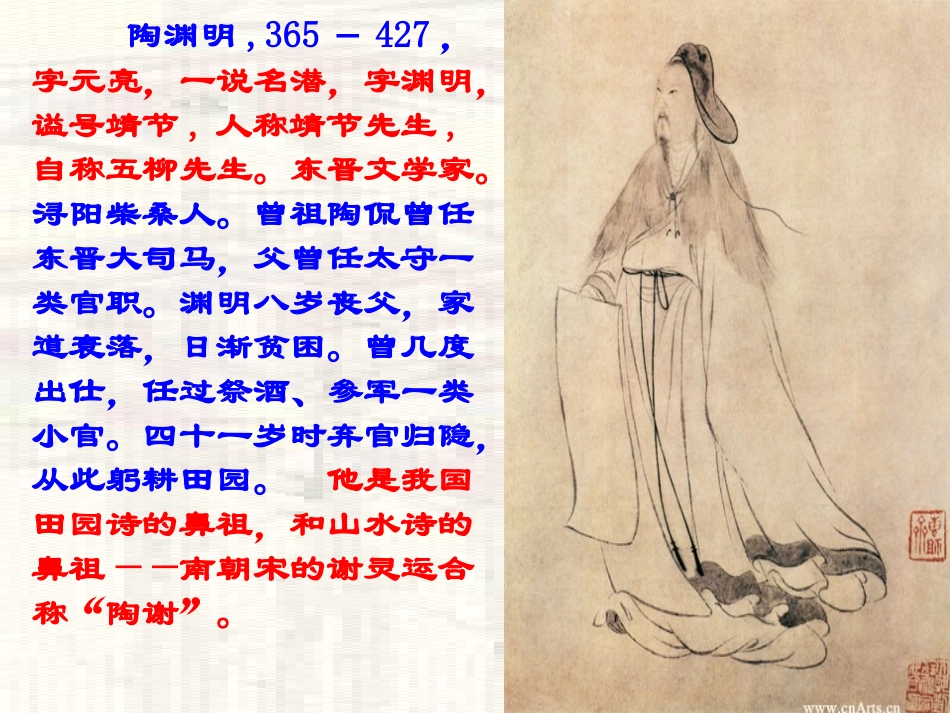 陶渊明,365－427，
字元亮，一说名潜，字渊明，
谥号靖节，人称靖节先生，
自称五柳先生。东晋文学家。
浔阳柴桑人。曾祖陶侃曾任
东晋大司马，父曾任太守一
类官职。渊明八岁丧父，家
道衰落，日渐贫困。曾几度
出仕，任过祭酒、参军一类
小官。四十一岁时弃官归隐，
从此躬耕田园。 他是我国
田园诗的鼻祖，和山水诗的
鼻祖－－南朝宋的谢灵运合
称“陶谢”。
www.cnArts.cn